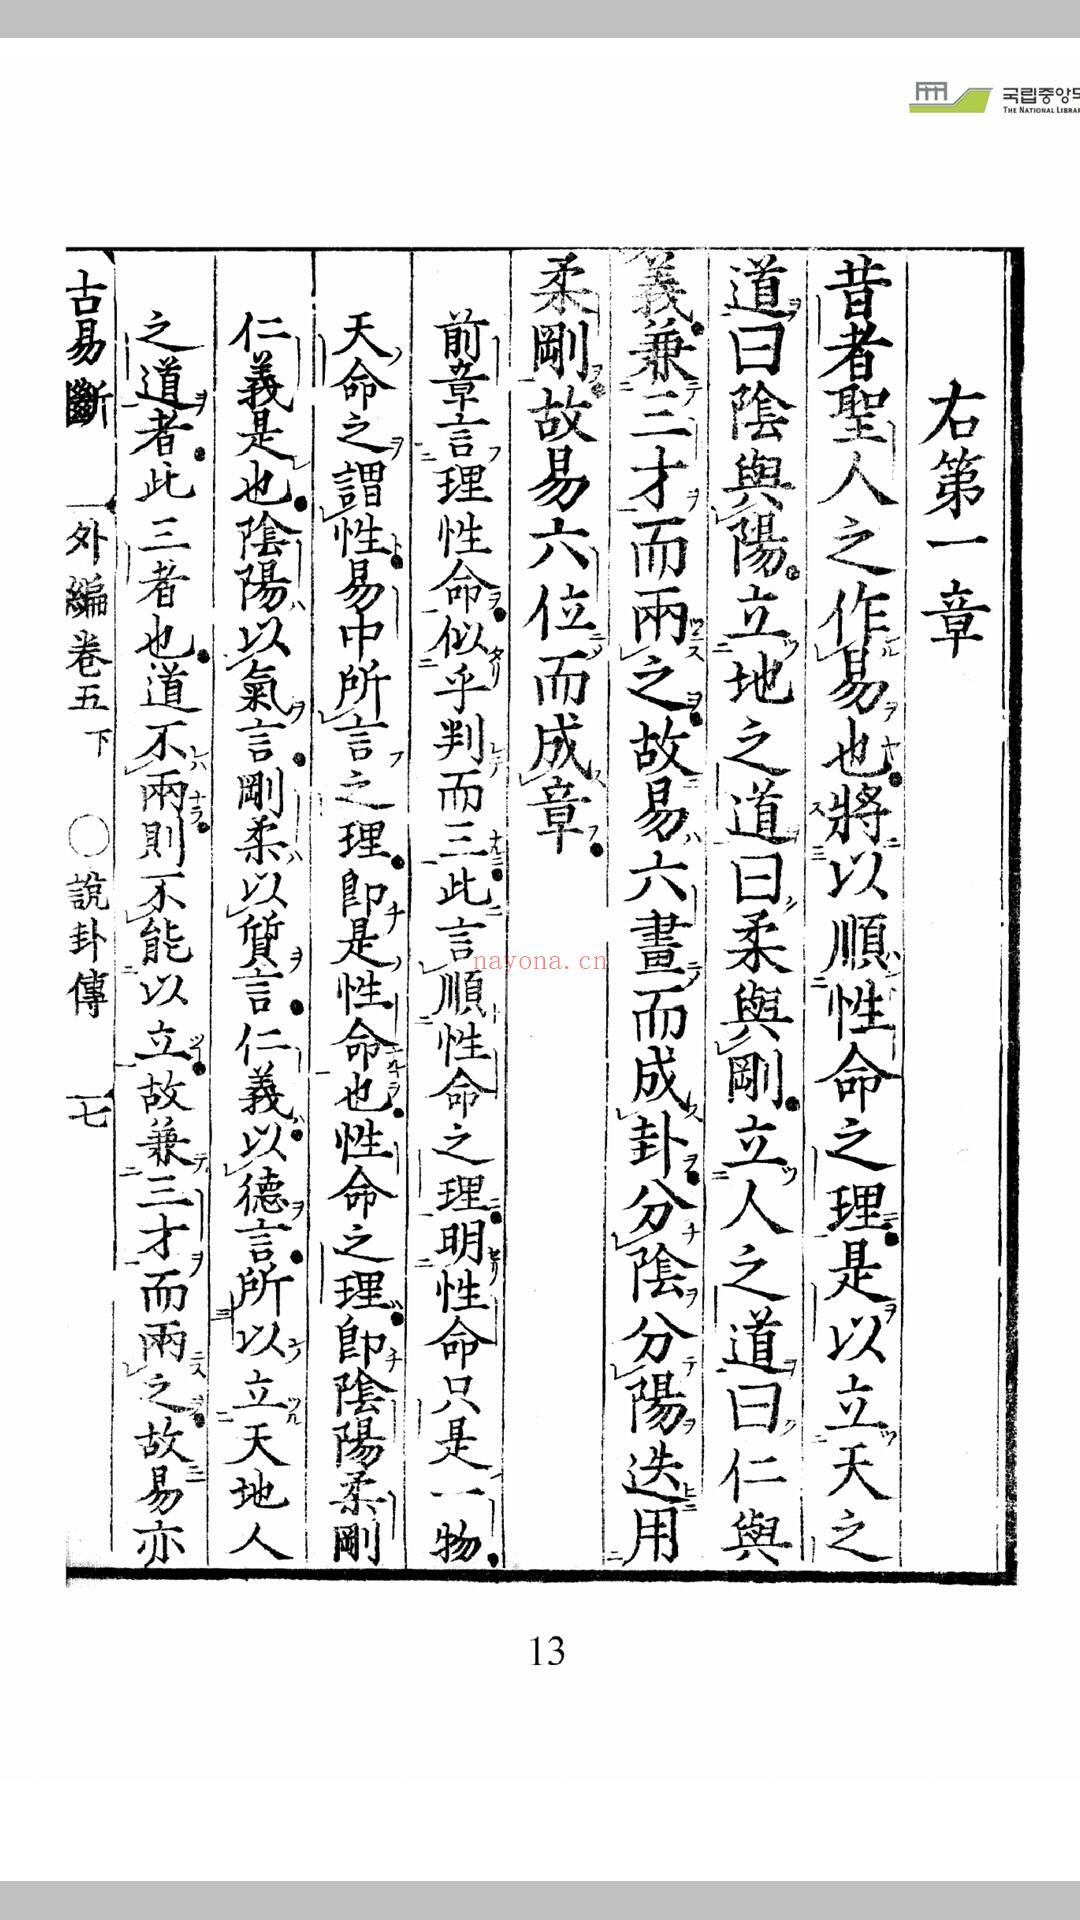 국립중앙도
THE NATIONAL LIBRAR
右第一章
昔者聖人之作易也將以順性命之理是以立天之
道曰陰與陽立地之道曰柔與剛立人之道曰仁與
義兼三才而兩之故易六畫而成卦分陰分陽迭用
柔剛故易六位而成章
前章言理性命似乎判而三此言順性命之理明性命只是一物
天命之謂性易中所言之理卽是性命也性命之理卽陰陽柔剛
仁義是也陰陽以氣言剛柔以質言仁義以德言所以立天地人
之道者此三者也道不兩則不能以立故兼三才而兩之故易亦
古易斷 外編卷五下 ○說卦傳 七
nayona.cn
13